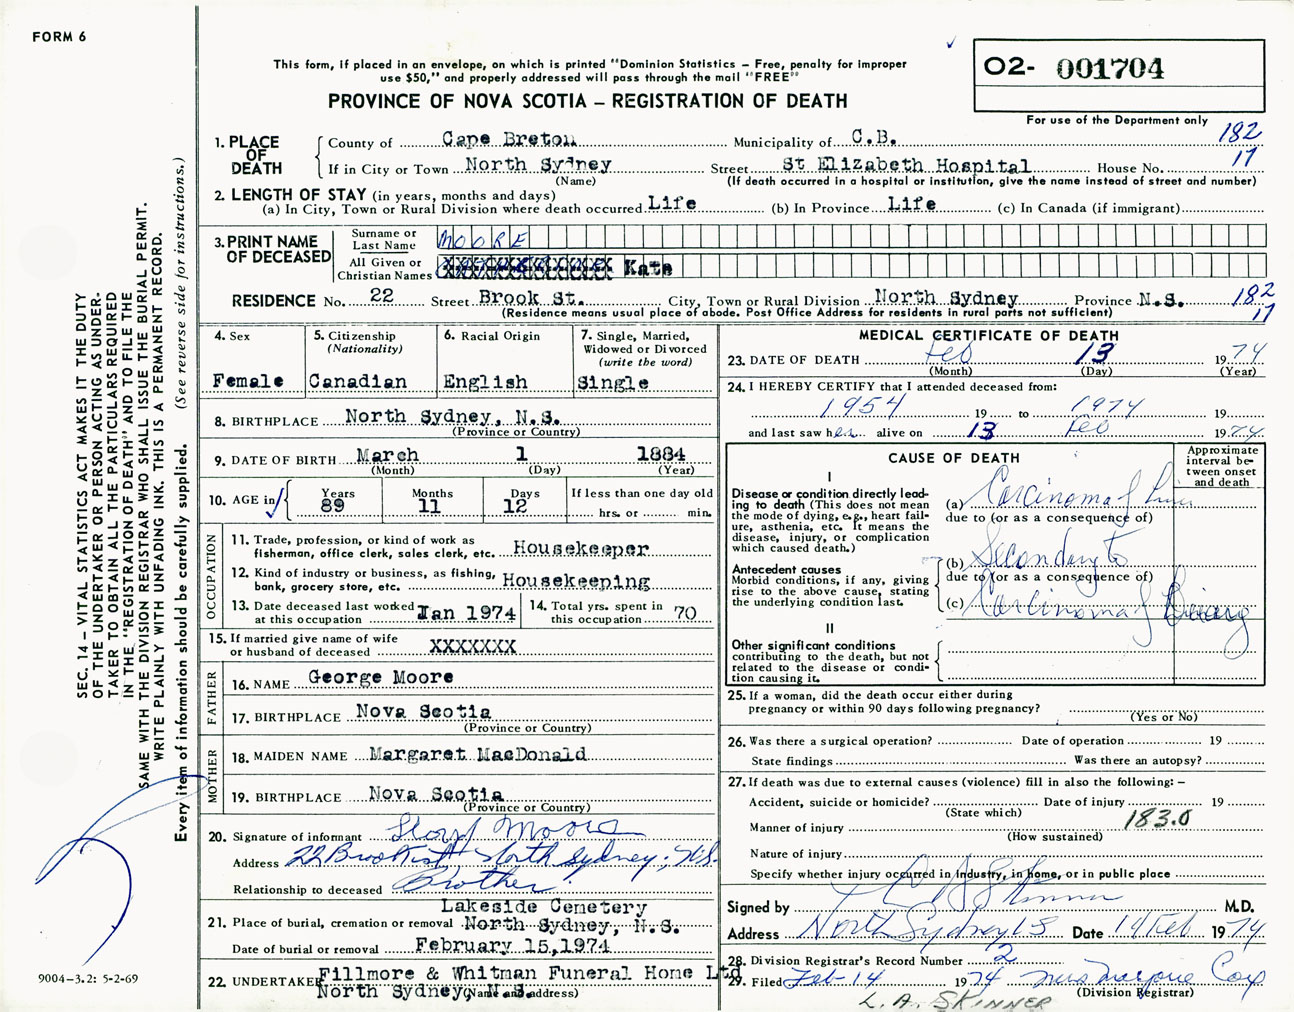 FORM 6
This form, if placed in an envelope, on which is printed "Dominion Statistics – Free, penalty for improper
use $50," and properly addressed will pass through the mail "FREE"
PROVINCE OF NOVA SCOTIA – REGISTRATION OF DEATH
O2- 001704
For use of the Department only
1. PLACE OF DEATH
County of Cape Breton Municipality of C.B. 182
If in City or Town North Sydney Street St Elizabeth Hospital House No. 17
(Name) (If death occurred in a hospital or institution, give the name instead of street and number)
2. LENGTH OF STAY (in years, months and days)
(a) In City, Town or Rural Division where death occurred Life (b) In Province Life (c) In Canada (if immigrant)
3. PRINT NAME OF DECEASED
Surname or Last Name MOORE
All Given or Christian Names Kate
RESIDENCE No. 22 Street Brook St. City, Town or Rural Division North Sydney Province N.S. 182
(Residence means usual place of abode. Post Office Address for residents in rural parts not sufficient) 17
4. Sex
Female
5. Citizenship
(Nationality)
Canadian
6. Racial Origin
English
7. Single, Married,
Widowed or Divorced
(write the word)
Single
8. BIRTHPLACE North Sydney, N.S.
(Province or Country)
9. DATE OF BIRTH March 1 1884
(Month) (Day) (Year)
10. AGE in
Years 89
Months 11
Days 12
If less than one day old
hrs. or min.
OCCUPATION
11. Trade, profession, or kind of work as
fisherman, office clerk, sales clerk, etc. Housekeeper
12. Kind of industry or business, as fishing,
bank, grocery store, etc. Housekeeping
13. Date deceased last worked
at this occupation Jan 1974
14. Total yrs. spent in
this occupation 70
15. If married give name of wife
or husband of deceased XXXXXXX
FATHER
16. NAME George Moore
17. BIRTHPLACE Nova Scotia
(Province or Country)
MOTHER
18. MAIDEN NAME Margaret MacDonald
19. BIRTHPLACE Nova Scotia
(Province or Country)
20. Signature of informant Lloyd Moore
Address 22 Brook St North Sydney, N.S.
Relationship to deceased Brother
Lakeside Cemetery
21. Place of burial, cremation or removal North Sydney, N.S.
Date of burial or removal February 15,1974
22. UNDERTAKER Fillmore & Whitman Funeral Home Ltd
North Sydney, N.S.
(Name and address)
MEDICAL CERTIFICATE OF DEATH
23. DATE OF DEATH Feb 13 1974
(Month) (Day) (Year)
24. I HEREBY CERTIFY that I attended deceased from:
1954 19 to 1974 19
and last saw her alive on 13 Feb 1974
CAUSE OF DEATH
Approximate
interval be-
tween onset
and death
I
Disease or condition directly lead-
ing to death (This does not mean
the mode of dying, e.g., heart fail-
ure, asthenia, etc. It means the
disease, injury, or complication
which caused death.)
(a) Carcinoma of Liver
due to (or as a consequence of)
(b) Secondary to
due to (or as a consequence of)
(c) Carcinoma of
Antecedent causes
Morbid conditions, if any, giving
rise to the above cause, stating
the underlying condition last.
II
Other significant conditions
contributing to the death, but not
related to the disease or condi-
tion causing it.
25. If a woman, did the death occur either during
pregnancy or within 90 days following pregnancy?
(Yes or No)
26. Was there a surgical operation? Date of operation 19
State findings Was there an autopsy?
27. If death was due to external causes (violence) fill in also the following: –
Accident, suicide or homicide? Date of injury 19
(State which)
Manner of injury 183.0
(How sustained)
Nature of injury
Specify whether injury occurred in industry, in home, or in public place
Signed by Skinner M.D.
Address North Sydney NS Date 14 Feb 1974
28. Division Registrar's Record Number 2
29. Filed Feb-14 1974 Mrs Marjorie Cox
(Division Registrar)
L.A. SKINNER
SEC. 14 – VITAL STATISTICS ACT MAKES IT THE DUTY
OF THE UNDERTAKER OR PERSON ACTING AS UNDER-
TAKER TO OBTAIN ALL THE PARTICULARS REQUIRED
IN THE "REGISTRATION OF DEATH" AND TO FILE THE
SAME WITH THE DIVISION REGISTRAR WHO SHALL ISSUE THE BURIAL PERMIT.
WRITE PLAINLY WITH UNFADING INK. THIS IS A PERMANENT RECORD.
Every item of information should be carefully supplied. (See reverse side for instructions.)
9004–3.2: 5-2-69